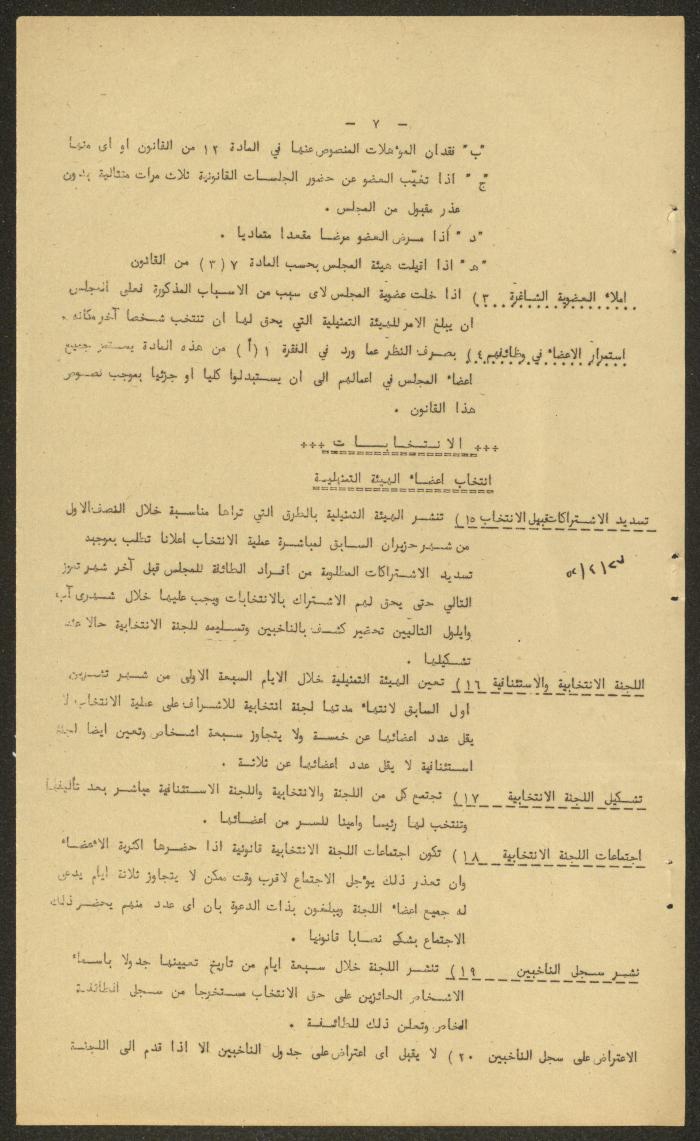 - ٧ -
"ب" فقدان المؤهلات المنصوص عنها في المادة ١٢ من القانون او اى منها
"ج" اذا تغيّب العضو عن حضور الجلسات القانونية ثلاث مرات متتالية بدون
عذر مقبول من المجلس .
"د" أذا مرض العضو مرضا مقعدا متماديا .
"هـ" اذا اقيلت هيئة المجلس بحسب المادة ٧ (٣) من القانون
املاء العضوية الشاغرة ٣) اذا خلت عضوية المجلس لاى سبب من الاسباب المذكورة فعلى المجلس
ان يبلغ الامر للهيئة التمثيلية التي يحق لها ان تنتخب شخصا آخر مكانه .
استمرار الاعضاء في وظائفهم ٤) بصرف النظر عما ورد في الفقرة ١ (أ) من هذه المادة يستمر جميع
اعضاء المجلس في اعمالهم الى ان يستبدلوا كليا او جزئيا بموجب نصوص
هذا القانون .
+++ الانتخابات +++
انتخاب اعضاء الهيئة التمثيلية
تسديد الاشتراكات قبيل الانتخاب ١٥) تنشر الهيئة التمثيلية بالطرق التي تراها مناسبة خلال النصف الاول
من شهر حزيران السابق لمباشرة عملية الانتخاب اعلانا تطلب بموجبه
تسديد الاشتراكات المطلوبة من افراد الطائفة للمجلس قبل آخر شهر تموز
التالي حتى يحق لهم الاشتراك بالانتخابات ويجب عليها خلال شهرى آب
وايلول التاليين تحضير كشف بالناخبين وتسليمه للجنة الانتخابية حالا عند
تشكيلها .
اللجنة الانتخابية والاستئنافية ١٦) تعين الهيئة التمثيلية خلال الايام السبعة الاولى من شهر تشرين
اول السابق لانتهاء مدتها لجنة انتخابية للاشراف على عملية الانتخاب لا
يقل عدد اعضائها عن خمسة ولا يتجاوز سبعة اشخاص وتعين ايضا لجنة
استئنافية لا يقل عدد اعضائها عن ثلاثة .
تشكيل اللجنة الانتخابية ١٧) تجتمع كل من اللجنة والانتخابية واللجنة الاستئنافية مباشر بعد تأليفها
وتنتخب لها رئيسا وامينا للسر من اعضائها .
اجتماعات اللجنة الانتخابية ١٨) تكون اجتماعات اللجنة الانتخابية قانونية اذا حضرها اكثرية الاعضاء
وان تعذر ذلك يؤجل الاجتماع لاقرب وقت ممكن لا يتجاوز ثلاثة ايام يدعى
له جميع اعضاء اللجنة ويبلغون بذات الدعوة بان اى عدد منهم يحضر ذلك
الاجتماع يشكل نصابا قانونيا .
نشر سجل الناخبين ١٩) تنشر اللجنة خلال سبعة ايام من تاريخ تعيينها جدولا باسماء
الاشخاص الحائزين على حق الانتخاب مستخرجا من سجل الطائفة
الخاص وتعلن ذلك للطائفة .
الاعتراض على سجل الناخبين ٢٠) لا يقبل اى اعتراض على جدول الناخبين الا اذا قدم الى اللجنة